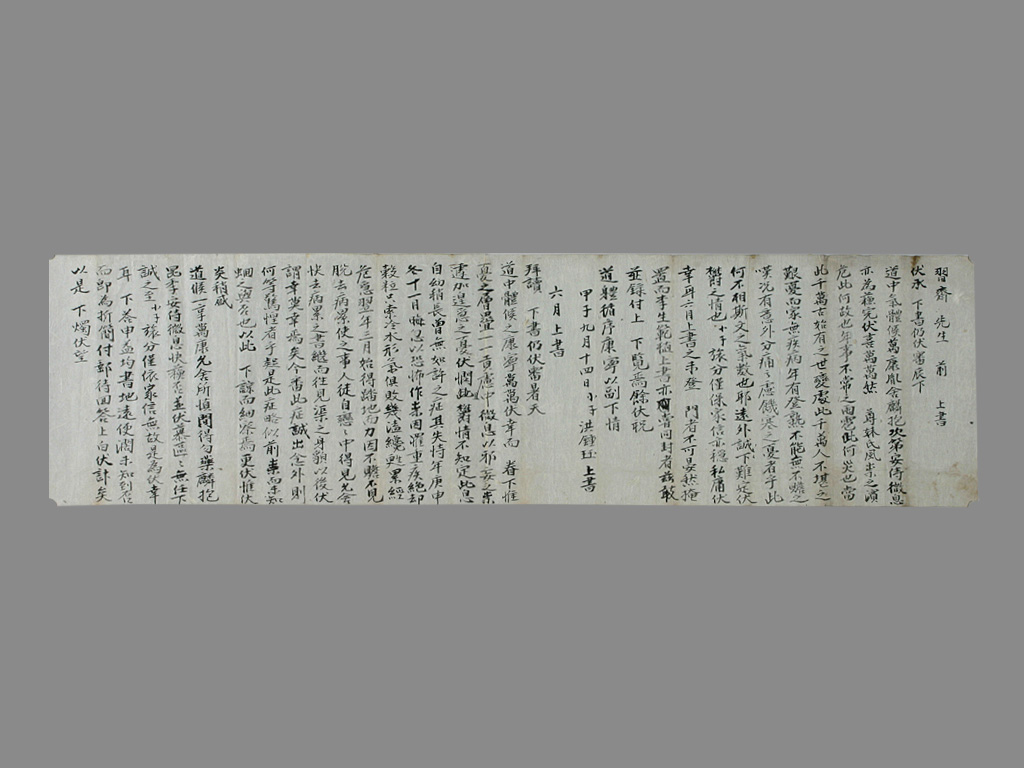 習齋 先生 前 上書
伏承 下書仍伏審辰下
道中氣體候萬康胤舍麟抱次第安侍微息
亦為穩完伏喜萬萬 尊姊氏風祟之瀕
危此何故也年事不常之雨雹此何災也當
此千萬古始有之世變處此千萬人不堪之
艱憂而家無疾病年有登熟不能無不贍之
嘆況有意外分痛之慮饑巻之憂者乎此
何不相斯文之氣數也耶遠外誠下難定伏
鬱之情也小子旅分僅保家信亦穩私庸伏
幸耳六月上書之未發 門者不可晏然掩
置而李生範植上書亦有同封者茲敢
並錄付上 下覽焉餘伏祝
道體循序康寧以副下情
甲子九月十四日小子洪鍾 上書
六月上書
拜讀 下書仍伏審暑天
道中體候之康寧萬萬伏幸而 眷下惟
憂之層疊一一貢慮中微息以邪妄之祟
遽加遑急之憂伏悶鬱情不知定此息
自幼稍長曾無如許之症且失恃年庚申
冬十月晦忽以恐怖作祟因罹重疾絕却
穀粒只索冷水形氣俱敗幾渣纔甦累經
危急翌年三月始得踏地而力因不贍不見
脫去病祟使之事人徒自戀戀中得見允舍
快去病累之書繼而往見渠之身額以後伏
謂幸莫幸焉矣今番此症誠出念外則
何等驚惶者乎起是此症略似前祟而未知
蛔之與否也以此 下諒而細察焉更伏惟伏
炎稍減
道候一享萬康允舍所愼間得勿藥麟抱
昆季安侍微息快穩否並伏慕區區無任下
誠之至小子旅分僅依家信無故是為伏幸
耳 下答申孟均書地遠使濶未知到否
而即為折簡付郵待回答上白伏計矣
以是 下燭伏望